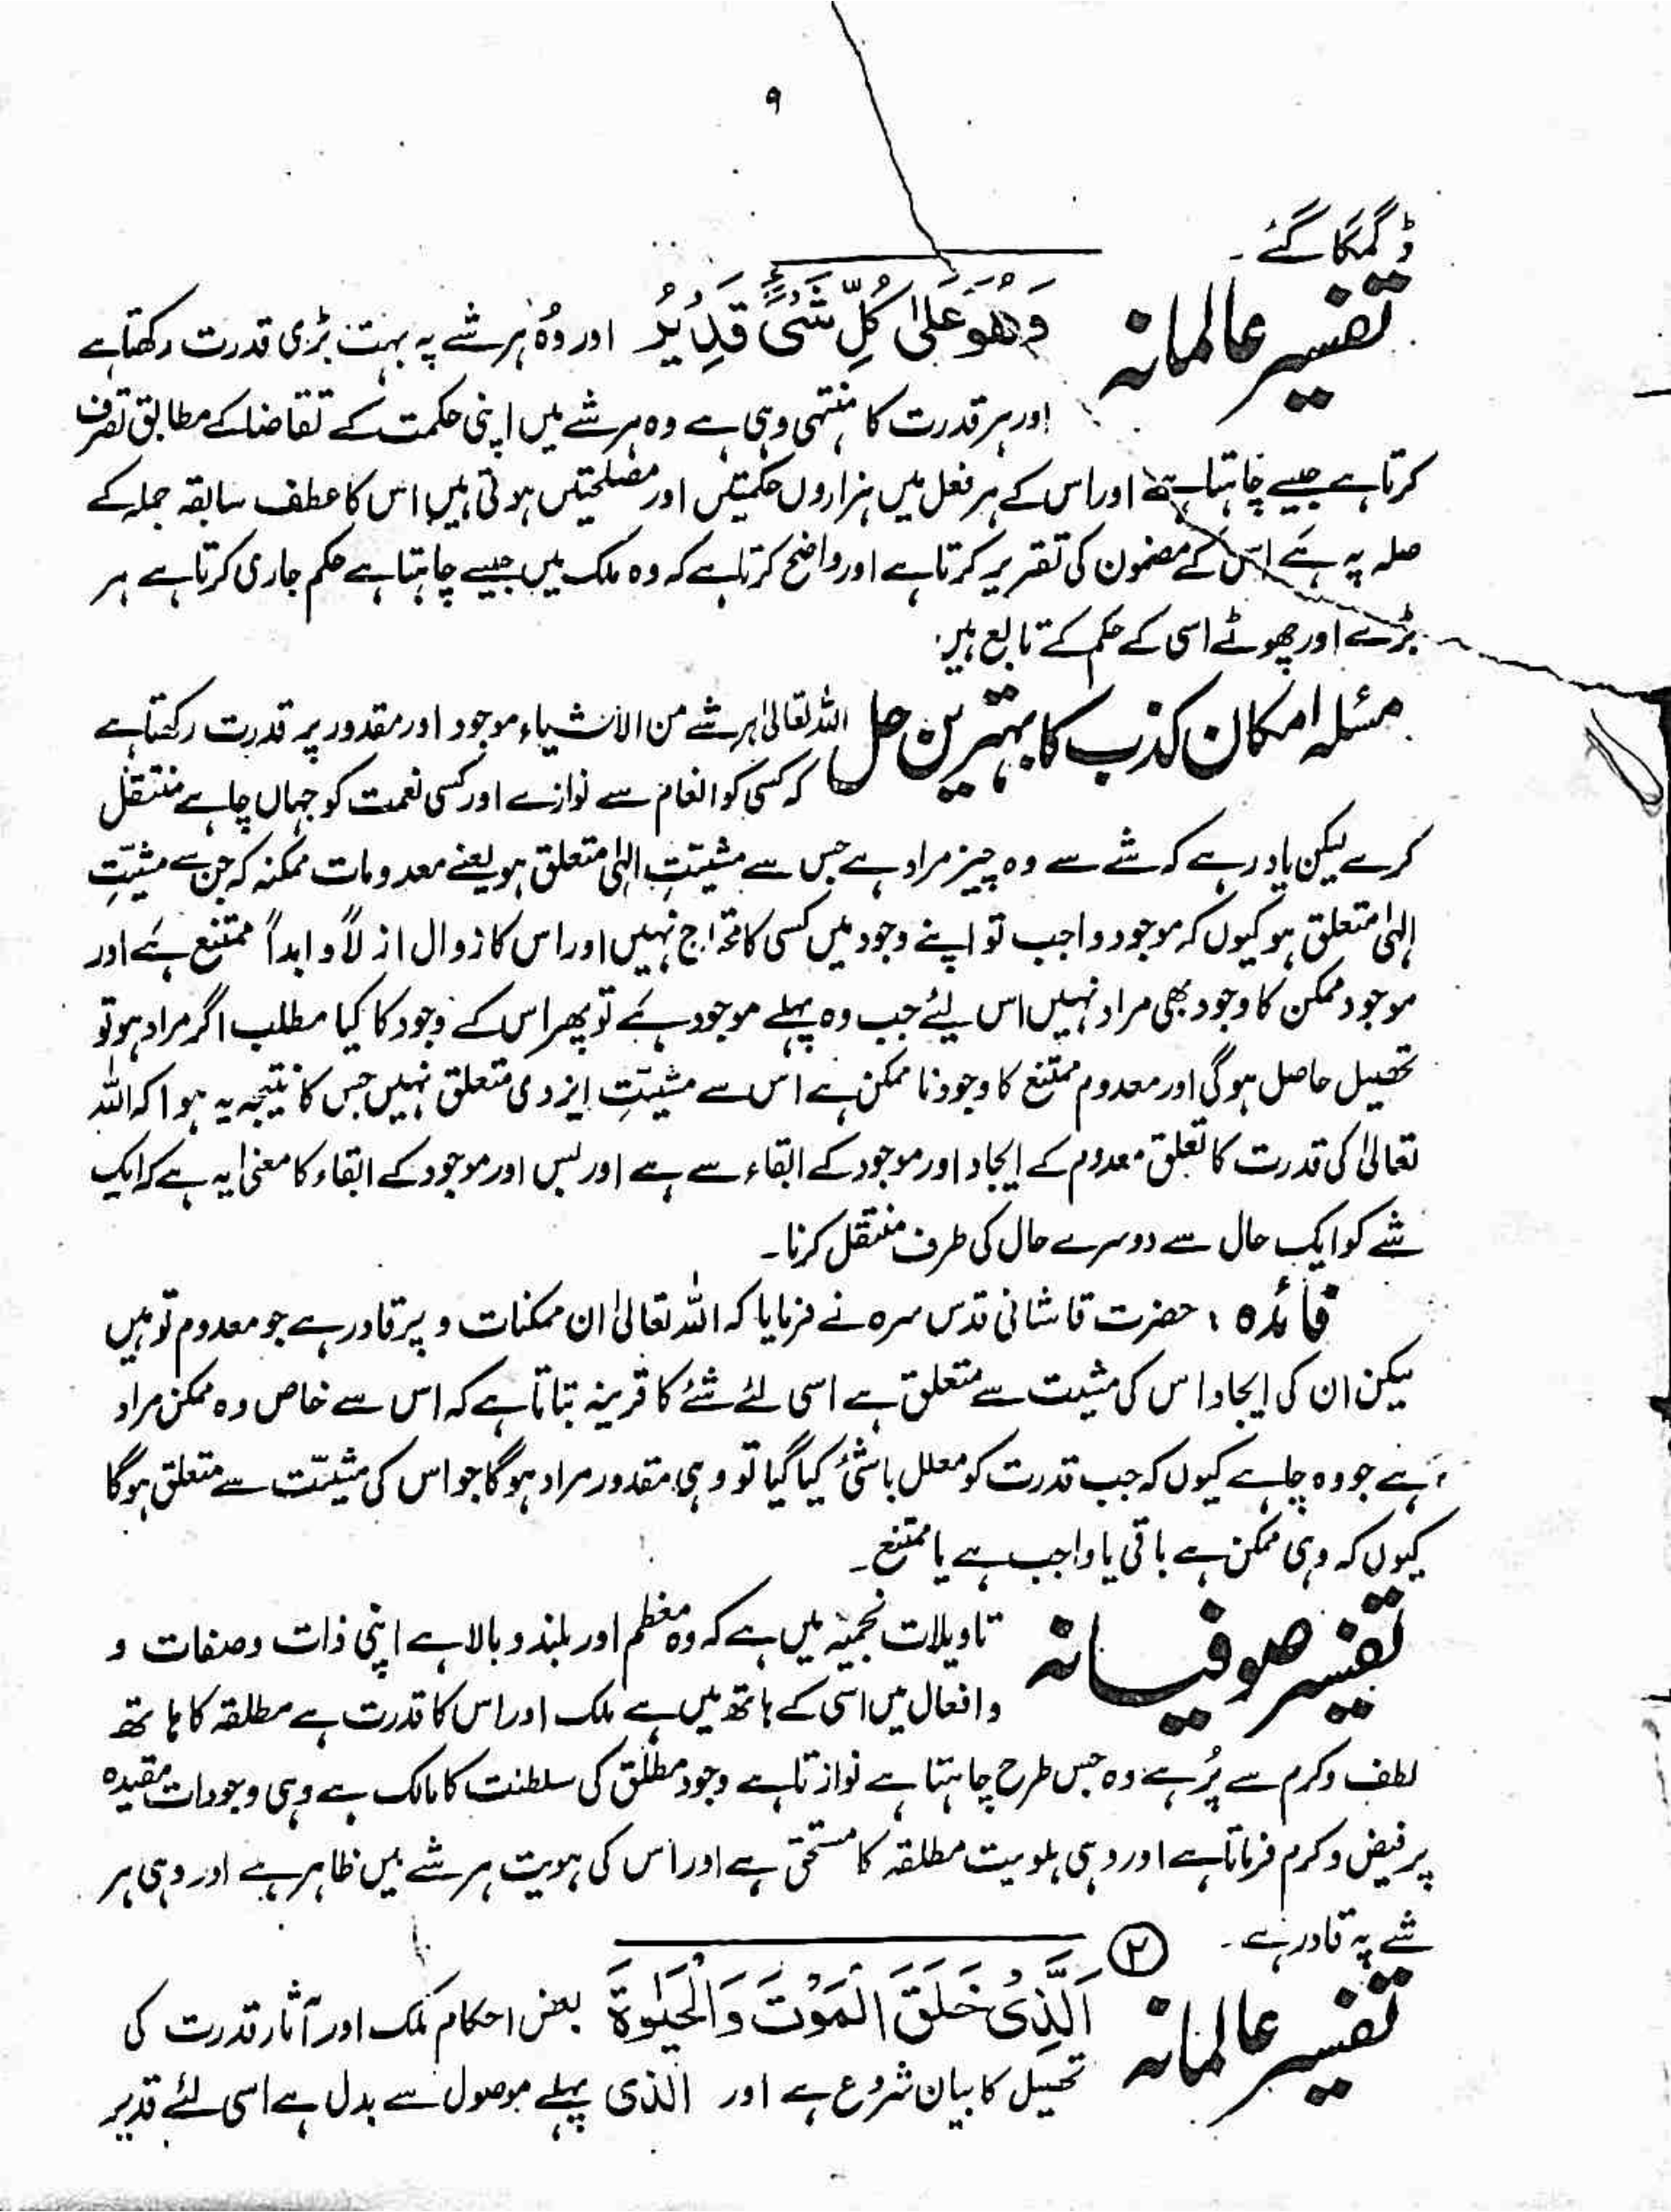 ۹
ڈگمگا گئے ۔
تفسیر عالمانہ
وَهُوَ عَلٰى كُلِّ شَىْءٍ قَدِيْرُ اور وُہ ہر شے پہ بہت بڑی قدرت رکھتا ہے
اور ہر قدرت کا منتہی وہی ہے وہ ہر شے میں اپنی حکمت کے تقاضا کے مطابق تصرف
کرتا ہے جیسے چاہتا ہے اور اس کے ہر فعل میں ہزاروں حکمتیں اور مصلحتیں ہوتی ہیں اس کا عطف سابقہ جملہ کے
صلہ پہ ہے اس کے مضمون کی تقریر کرتا ہے اور واضح کرتا ہے کہ وہ ملک میں جیسے چاہتا ہے حکم جاری کرتا ہے ہر
بڑے اور چھوٹے اسی کے حکم کے تابع ہیں.
مسئلہ امکان کذب کا بہترین حل
اللہ تعالیٰ ہر شے من الاشیاء موجود اور مقدور پر قدرت رکھتا ہے
کہ کسی کو انعام سے نوازے اور کسی نعمت کو جہاں چاہے منتقل
کرے لیکن یاد رہے کہ شے سے وہ چیز مراد ہے جس سے مشیتِ الہٰی متعلق ہو یعنے معدومات ممکنہ کہ جن سے مشیّتِ
الہٰی متعلق ہو کیوں کہ موجود واجب تو اپنے وجود میں کسی کا محتاج نہیں اور اس کا زوال ازلاً و ابداً ممتنع ہے اور
موجود ممکن کا وجود بھی مراد نہیں اس لیئے جب وہ پہلے موجود ہے تو پھر اس کے وجود کا کیا مطلب اگر مراد ہو تو
تحصیل حاصل ہو گی اور معدوم ممتنع کا وجود نا ممکن ہے اس سے مشیّتِ ایزدی متعلق نہیں جس کا نتیجہ یہ ہوا کہ اللہ
تعالیٰ کی قدرت کا تعلق معدوم کے ایجاد اور موجود کے ابقاء سے ہے اور بس اور موجود کے ابقاء کا معنیٰ یہ ہے کہ ایک
شے کو ایک حال سے دوسرے حال کی طرف منتقل کرنا ۔
فائدہ : حضرت قاشانی قدس سرہ نے فرمایا کہ اللہ تعالیٰ ان ممکنات و پر قادر ہے جو معدوم تو ہیں
لیکن ان کی ایجاد اس کی مشیت سے متعلق ہے اسی لئے شئے کا قرینہ بتاتا ہے کہ اس سے خاص وہ ممکن مراد
ہے جو وہ چاہے کیوں کہ جب قدرت کو معلل باشئ کیا گیا تو وہی مقدور مراد ہو گا جو اس کی مشیّت سے متعلق ہو گا
کیوں کہ وہی ممکن ہے باقی یا واجب ہے یا ممتنع ۔
تفسیر صوفیانہ
تاویلات نجمیّہ میں ہے کہ وہ معظم اور بلند و بالا ہے اپنی ذات و صفات و
و افعال میں اسی کے ہاتھ میں ہے ملک اور اس کا قدرت ہے مطلقہ کا ہاتھ
لطف و کرم سے پُر ہے وہ جس طرح چاہتا ہے نوازتا ہے وجود مطلق کی سلطنت کا مالک ہے وہی وجودات مقیدہ
پر فیض و کرم فرماتا ہے اور وہی ہلویت مطلقہ کا مستحق ہے اور اس کی ہویت ہر شے میں ظاہر ہے اور وہی ہر
شے پہ قادر ہے ۔
۲
تفسیر عالمانہ
اَلَّذِىْ خَلَقَ الْمَوْتَ وَالْحَيٰوةَ بعض احکام ملک اور آثار قدرت کی
تحیل کا بیان شروع ہے اور الذی پہلے موصول سے بدل ہے اسی لئے قدیر